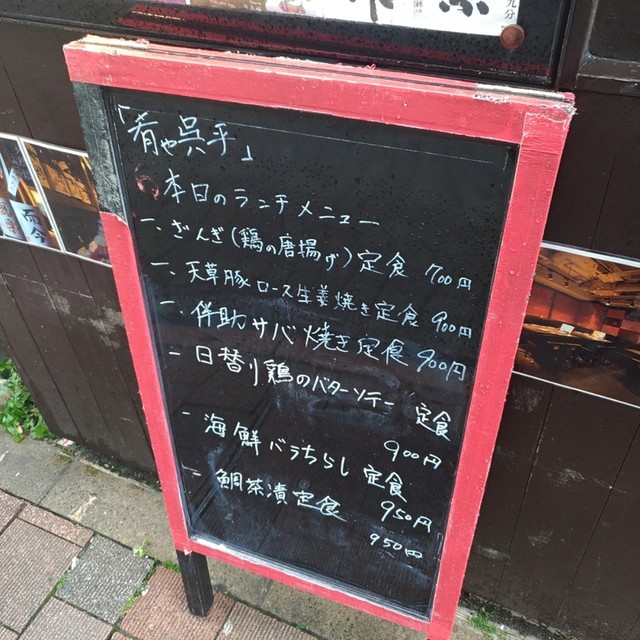 「肴や呉平」
本日のランチメニュー
一、ざんぎ(鶏の唐揚げ)定食 700円
一、天草豚ロース生姜焼き定食 900円
一、伴助サバ焼き定食 900円
一、日替り鶏のバターソテー 定食
900円
一、海鮮バラちらし定食
950円
一、鯛茶漬定食
950円
九分
而今